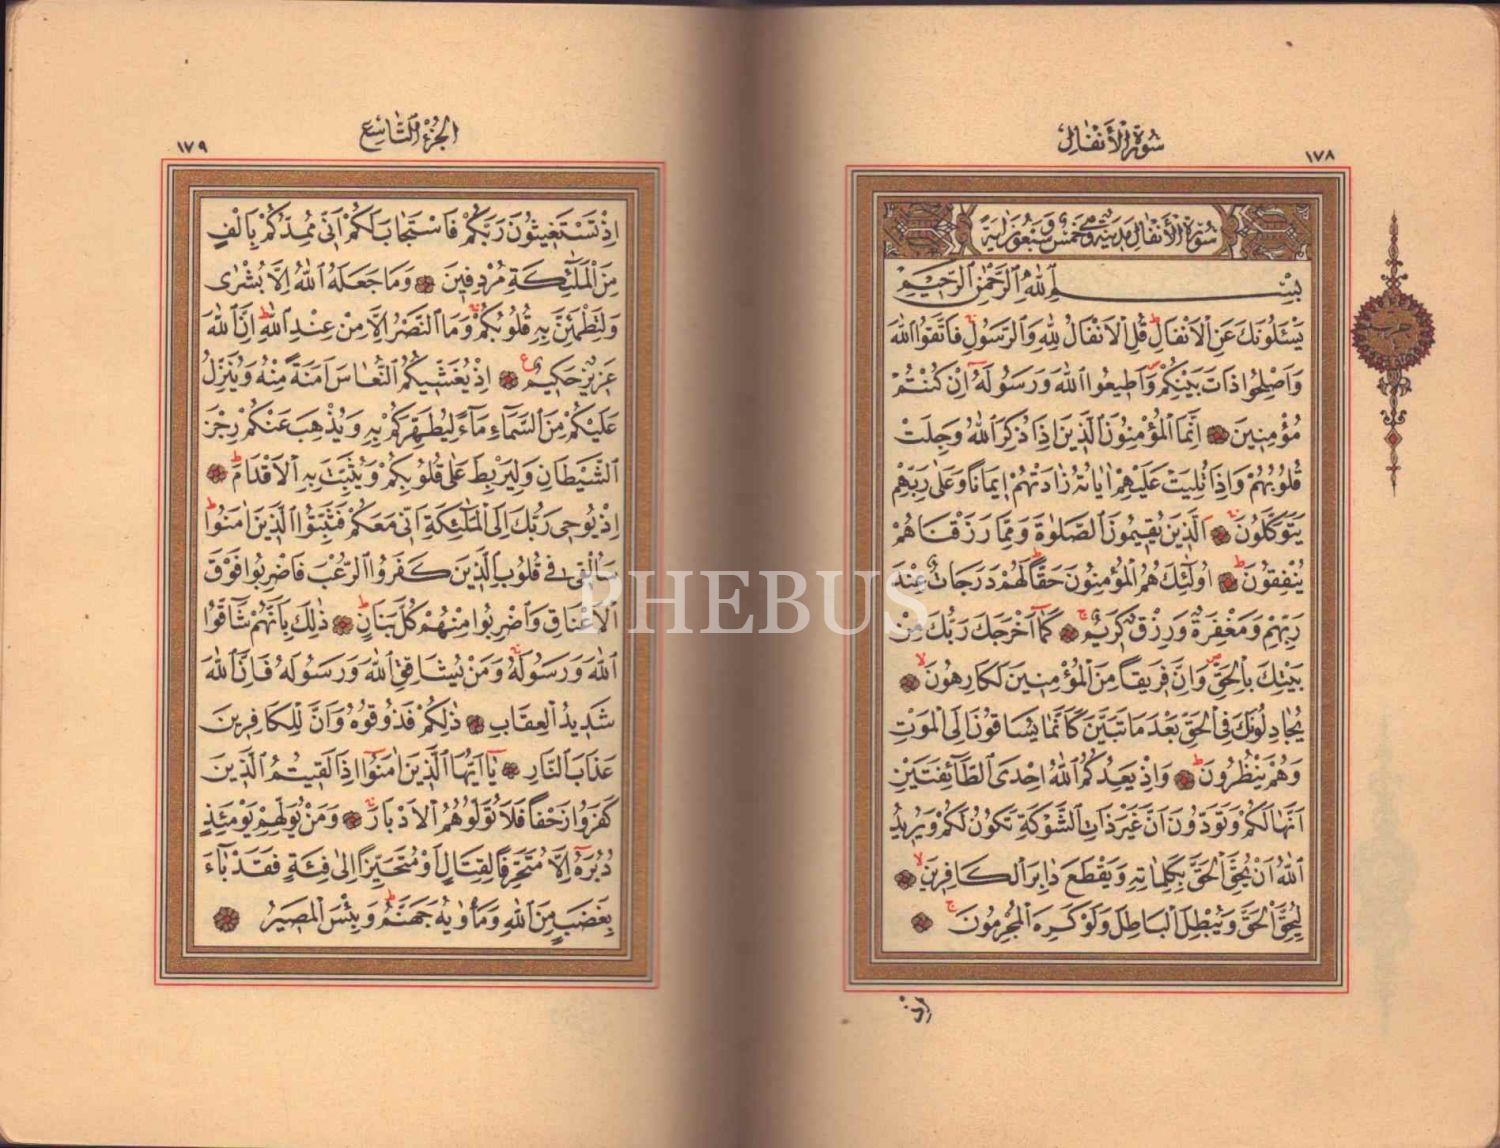 سُورَةُ الْأَنْفَالِ
١٧٨
سُورَةُ الْأَنْفَالِ مَدَنِيَّةٌ وَهِيَ خَمْسٌ وَسَبْعُونَ اٰيَةً
بِسْمِ اللّٰهِ الرَّحْمٰنِ الرَّحِيمِ
يَسْـَٔلُونَكَ عَنِ الْاَنْفَالِ قُلِ الْاَنْفَالُ لِلّٰهِ وَالرَّسُولِ فَاتَّقُوا اللّٰهَ
وَاَصْلِحُوا ذَاتَ بَيْنِكُمْ وَاَطِيعُوا اللّٰهَ وَرَسُولَهُٓ اِنْ كُنْتُمْ
مُؤْمِنِينَ اِنَّمَا الْمُؤْمِنُونَ الَّذِينَ اِذَا ذُكِرَ اللّٰهُ وَجِلَتْ
قُلُوبُهُمْ وَاِذَا تُلِيَتْ عَلَيْهِمْ اٰيَاتُهُ زَادَتْهُمْ اِيمَانًا وَعَلٰى رَبِّهِمْ
يَتَوَكَّلُونَ اَلَّذِينَ يُقِيمُونَ الصَّلٰوةَ وَمِمَّا رَزَقْنَاهُمْ
يُنْفِقُونَ اُولٰٓئِكَ هُمُ الْمُؤْمِنُونَ حَقًّا لَهُمْ دَرَجَاتٌ عِنْدَ
رَبِّهِمْ وَمَغْفِرَةٌ وَرِزْقٌ كَرِيمٌ كَمَٓا اَخْرَجَكَ رَبُّكَ مِنْ
بَيْتِكَ بِالْحَقِّ وَاِنَّ فَرِيقًا مِنَ الْمُؤْمِنِينَ لَكَارِهُونَ
يُجَادِلُونَكَ فِي الْحَقِّ بَعْدَ مَا تَبَيَّنَ كَاَنَّمَا يُسَاقُونَ اِلَى الْمَوْتِ
وَهُمْ يَنْظُرُونَ وَاِذْ يَعِدُكُمُ اللّٰهُ اِحْدَى الطَّٓائِفَتَيْنِ
اَنَّهَا لَكُمْ وَتَوَدُّونَ اَنَّ غَيْرَ ذَاتِ الشَّوْكَةِ تَكُونُ لَكُمْ وَيُرِيدُ
اللّٰهُ اَنْ يُحِقَّ الْحَقَّ بِكَلِمَاتِهِ وَيَقْطَعَ دَابِرَ الْكَافِرِينَ
لِيُحِقَّ الْحَقَّ وَيُبْطِلَ الْبَاطِلَ وَلَوْ كَرِهَ الْمُجْرِمُونَ
حزب
الْجُزْءُ التَّاسِعُ
١٧٩
اِذْ تَسْتَغِيثُونَ رَبَّكُمْ فَاسْتَجَابَ لَكُمْ اَنِّي مُمِدُّكُمْ بِاَلْفٍ
مِنَ الْمَلٰٓئِكَةِ مُرْدِفِينَ وَمَا جَعَلَهُ اللّٰهُ اِلَّا بُشْرٰى
وَلِتَطْمَئِنَّ بِهِ قُلُوبُكُمْ وَمَا النَّصْرُ اِلَّا مِنْ عِنْدِ اللّٰهِ اِنَّ اللّٰهَ
عَزِيزٌ حَكِيمٌ اِذْ يُغَشِّيكُمُ النُّعَاسَ اَمَنَةً مِنْهُ وَيُنَزِّلُ
عَلَيْكُمْ مِنَ السَّمَٓاءِ مَٓاءً لِيُطَهِّرَكُمْ بِهِ وَيُذْهِبَ عَنْكُمْ رِجْزَ
الشَّيْطَانِ وَلِيَرْبِطَ عَلٰى قُلُوبِكُمْ وَيُثَبِّتَ بِهِ الْاَقْدَامَ
اِذْ يُوحِي رَبُّكَ اِلَى الْمَلٰٓئِكَةِ اَنِّي مَعَكُمْ فَثَبِّتُوا الَّذِينَ اٰمَنُوا
سَاُلْقِي فِي قُلُوبِ الَّذِينَ كَفَرُوا الرُّعْبَ فَاضْرِبُوا فَوْقَ
الْاَعْنَاقِ وَاضْرِبُوا مِنْهُمْ كُلَّ بَنَانٍ ذٰلِكَ بِاَنَّهُمْ شَٓاقُّوا
اللّٰهَ وَرَسُولَهُ وَمَنْ يُشَاقِقِ اللّٰهَ وَرَسُولَهُ فَاِنَّ اللّٰهَ
شَدِيدُ الْعِقَابِ ذٰلِكُمْ فَذُوقُوهُ وَاَنَّ لِلْكَافِرِينَ
عَذَابَ النَّارِ يَٓا اَيُّهَا الَّذِينَ اٰمَنُٓوا اِذَا لَقِيتُمُ الَّذِينَ
كَفَرُوا زَحْفًا فَلَا تُوَلُّوهُمُ الْاَدْبَارَ وَمَنْ يُوَلِّهِمْ يَوْمَئِذٍ
دُبُرَهُٓ اِلَّا مُتَحَرِّفًا لِقِتَالٍ اَوْ مُتَحَيِّزًا اِلٰى فِئَةٍ فَقَدْ بَٓاءَ
بِغَضَبٍ مِنَ اللّٰهِ وَمَأْوٰيهُ جَهَنَّمُ وَبِئْسَ الْمَصِيرُ
PHEBUS